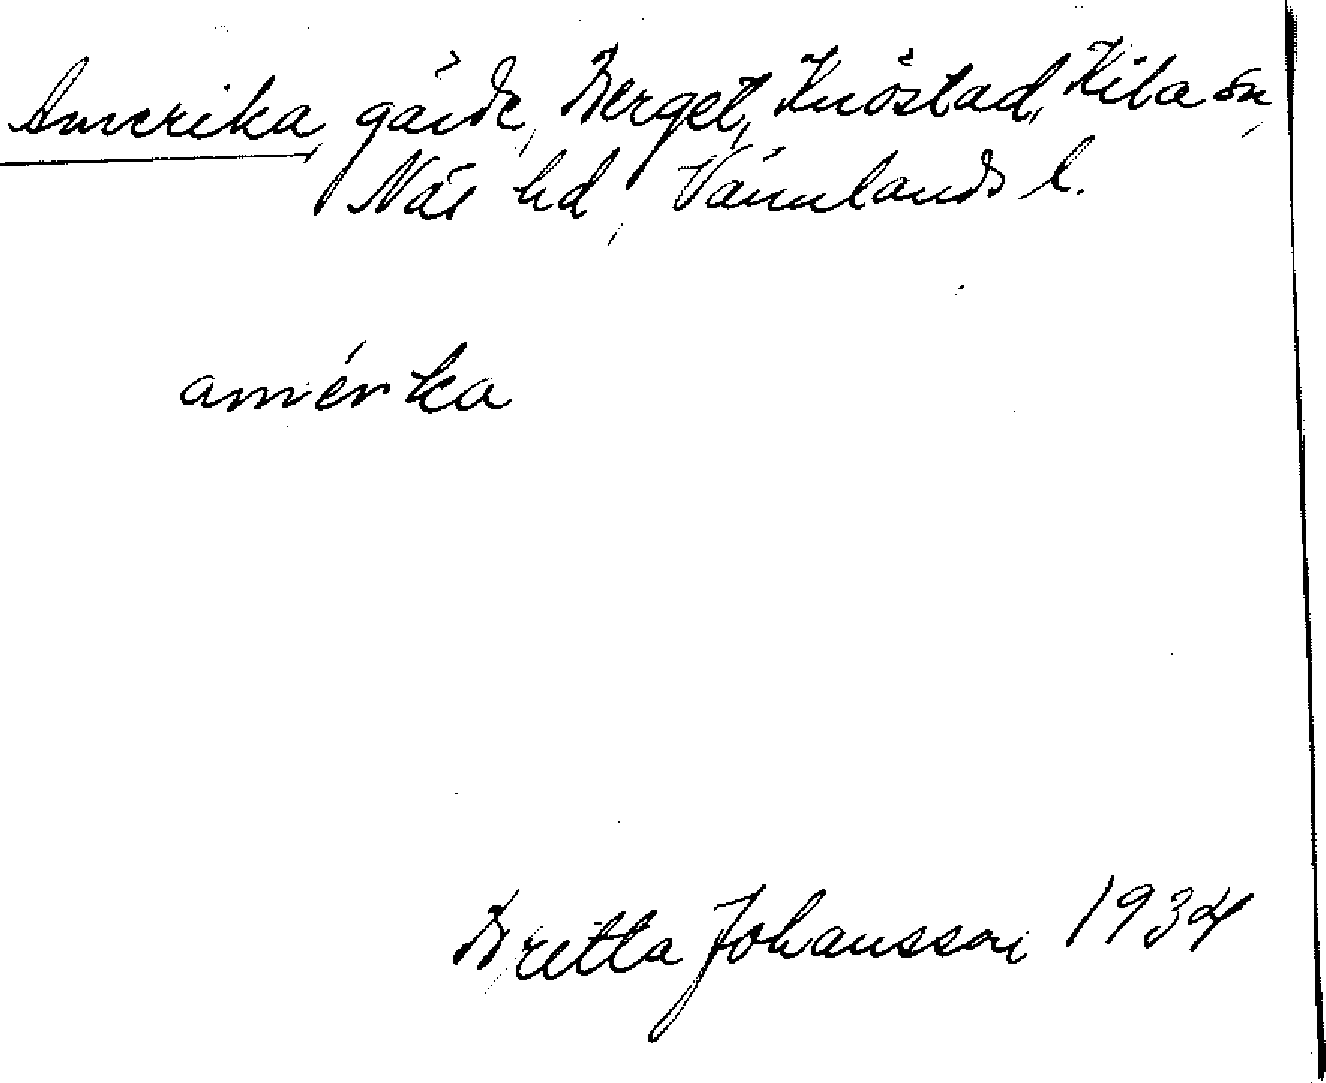 Amerika, gärde, Berget, Knöstad, Kila sn,
Näs hd, Värmlands l.
amérika
Bretta Johansson 1934